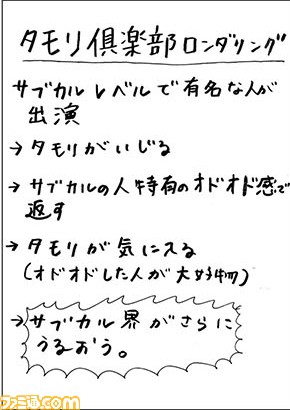 タモリ倶楽部ロンダリング
サブカルレベルで有名な人が
出演
→タモリがいじる
→サブカルの人特有のオドオド感で
返す
→タモリが気に入る
(オドオドした人が大好物)
→サブカル界がさらに
うるおう。
ファミ通.com